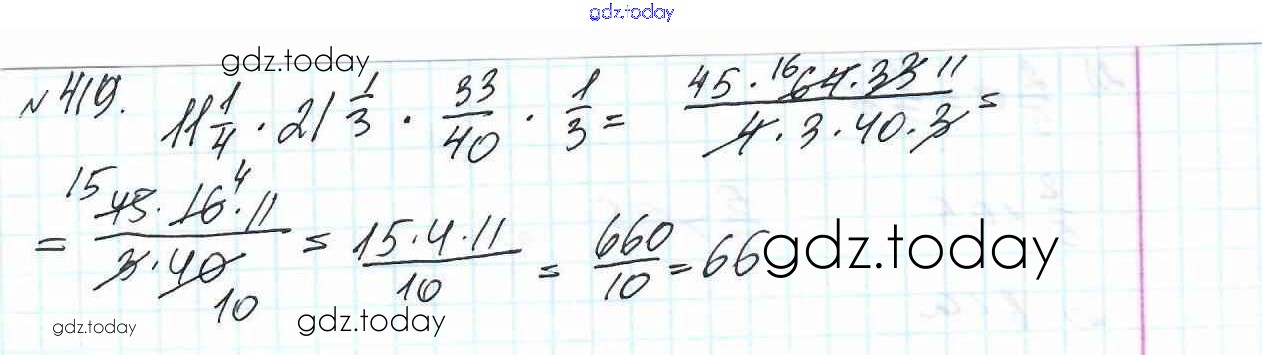 gdz.today
gdz.today
№ 419. 11 1/4 · 21 1/3 · 33/40 · 1/3 = 45 · 16 64 · 33 11 / 4 · 3 · 40 · 3 =
= 15 45 · 16 4 · 11 / 3 · 40 10 = 15 · 4 · 11 / 10 = 660/10 = 66
gdz.today
gdz.today
gdz.today